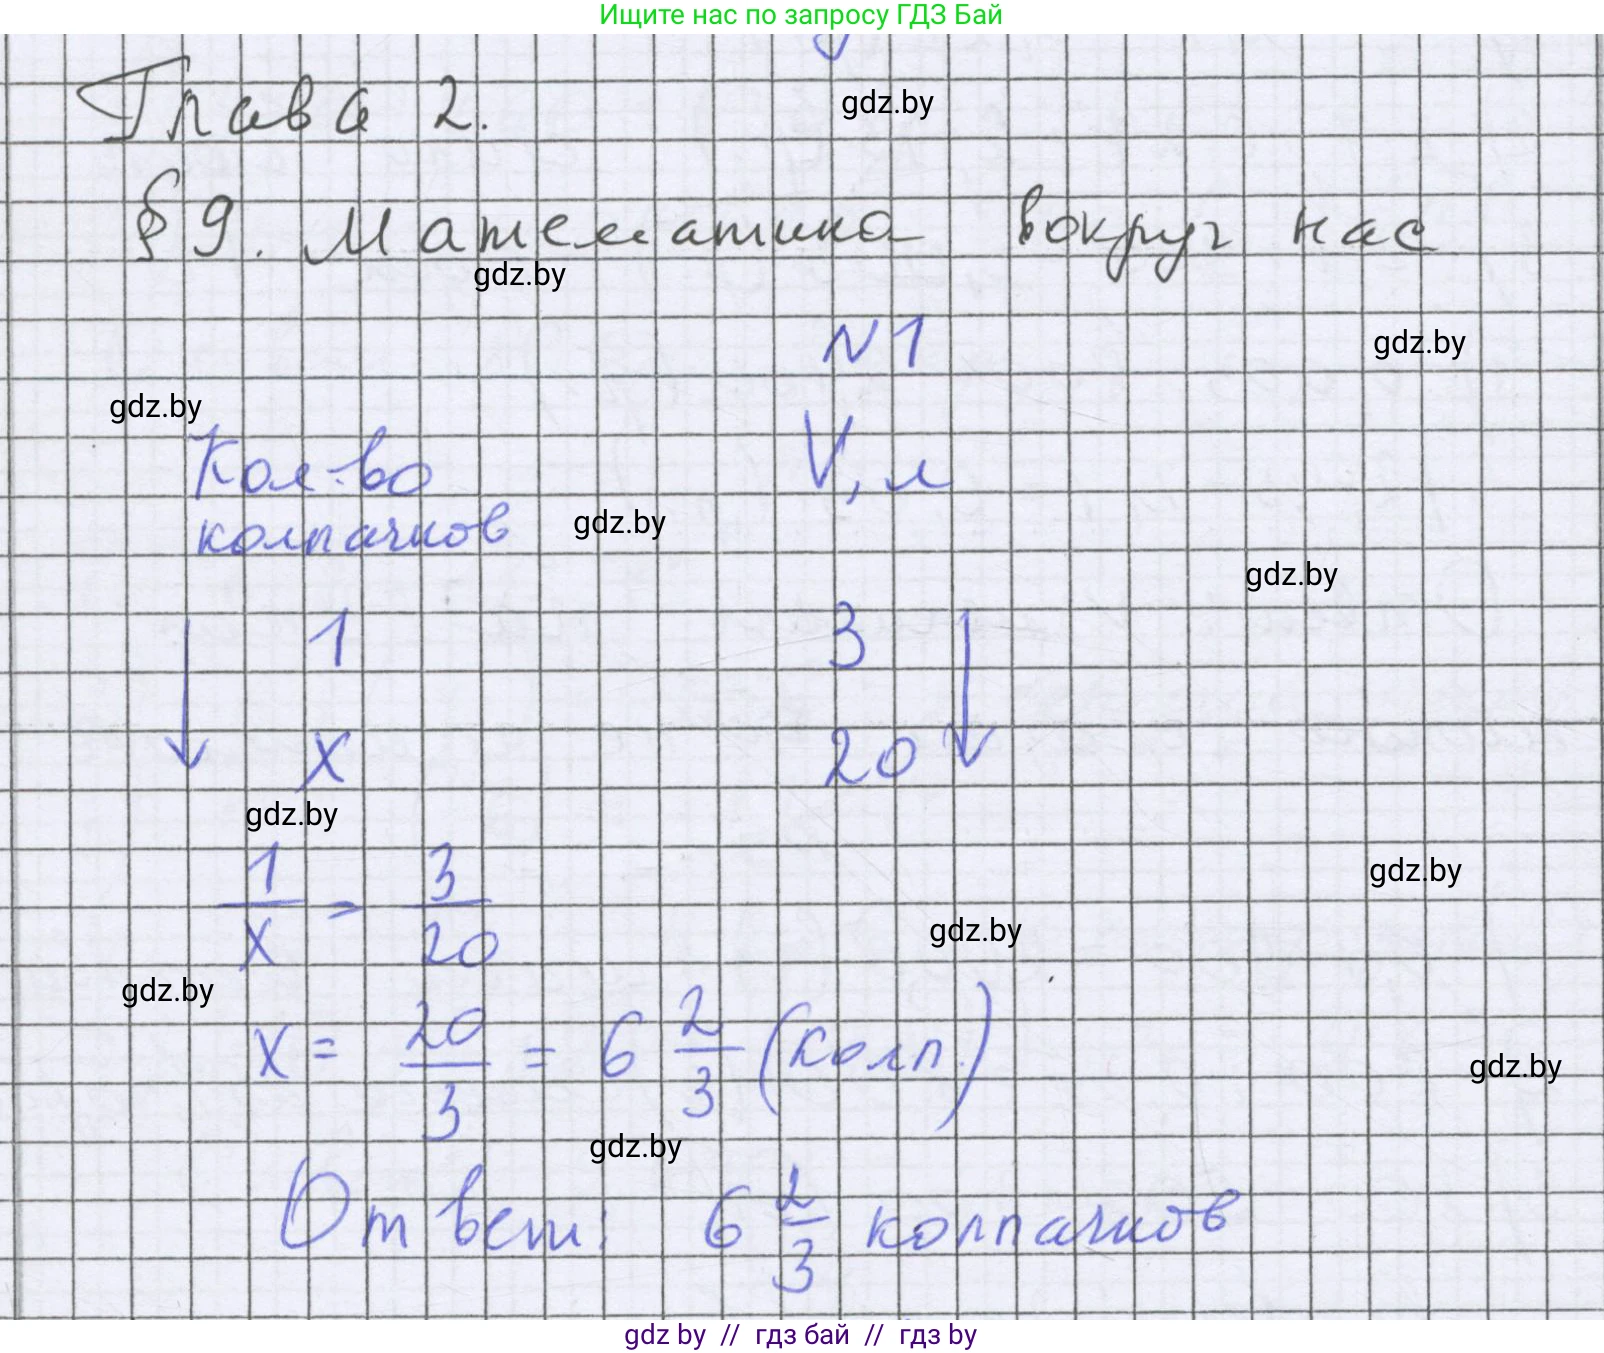 Ищите нас по запросу ГДЗ Бай
Глава 2.
gdz.by
§ 9. Математика вокруг нас
gdz.by
N1
gdz.by
gdz.by
Кол-во V, л
колпачков
gdz.by
gdz.by
1 3
x 20
gdz.by
1/x = 3/20
gdz.by
gdz.by
gdz.by
x = 20/3 = 6 2/3 (колп.)
gdz.by
gdz.by
Ответ: 6 2/3 колпачков
gdz by // гдз бай // гдз by